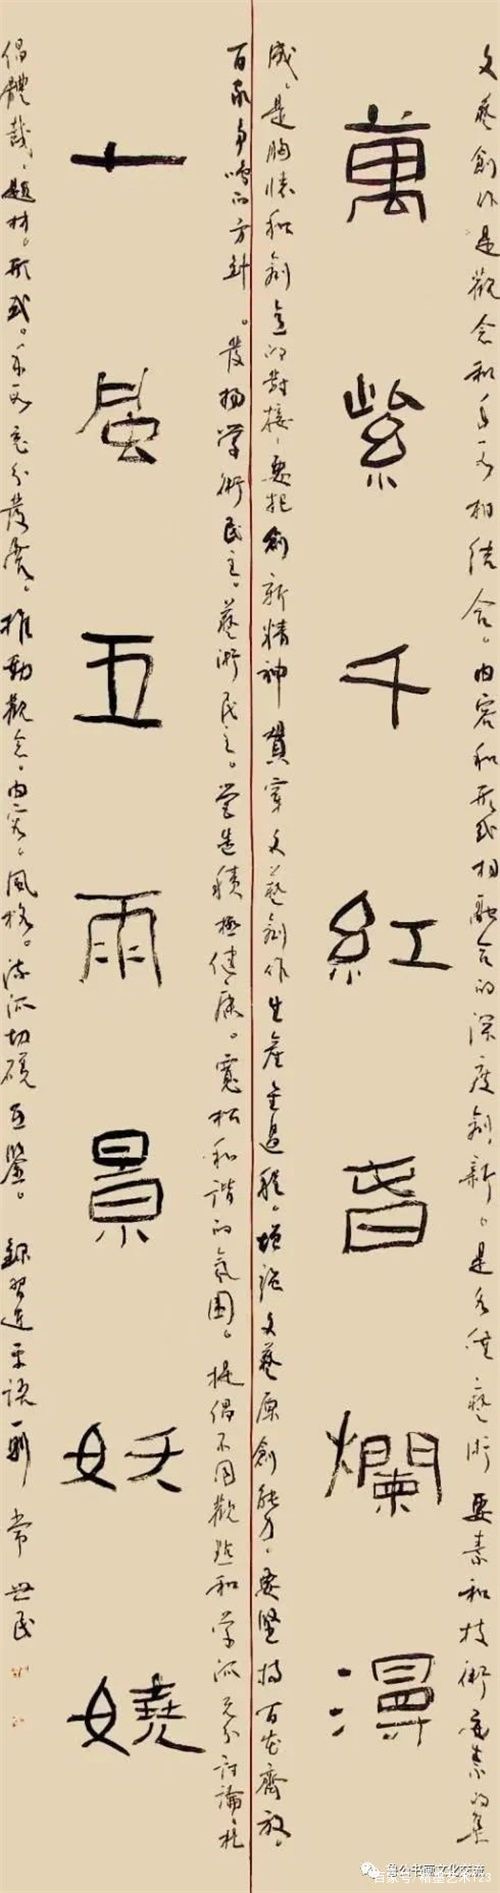 文藝創作是觀念和手段相結合。内容和形式相融合的深度創新。是各種藝術要素和技術要素的集
萬紫千紅旾爛漫
成，是胸懷和創意的對接，要把創新精神貫穿文藝創作生産全過程。增强文藝原創能力，要堅持百花齊放，
百家争鳴的方針。發揚学術民主。藝術民主。營造積極健康。寬松和諧的氛围。提倡不同觀點和学派充分討論，提
十風五雨景妖嬈
倡體裁，題材。形式。手段充分發展，推動觀念。内容，風格。流派切磋互鑒。 錄習近平語一則 常世民
书画文化交流
百家号/精墨艺术123